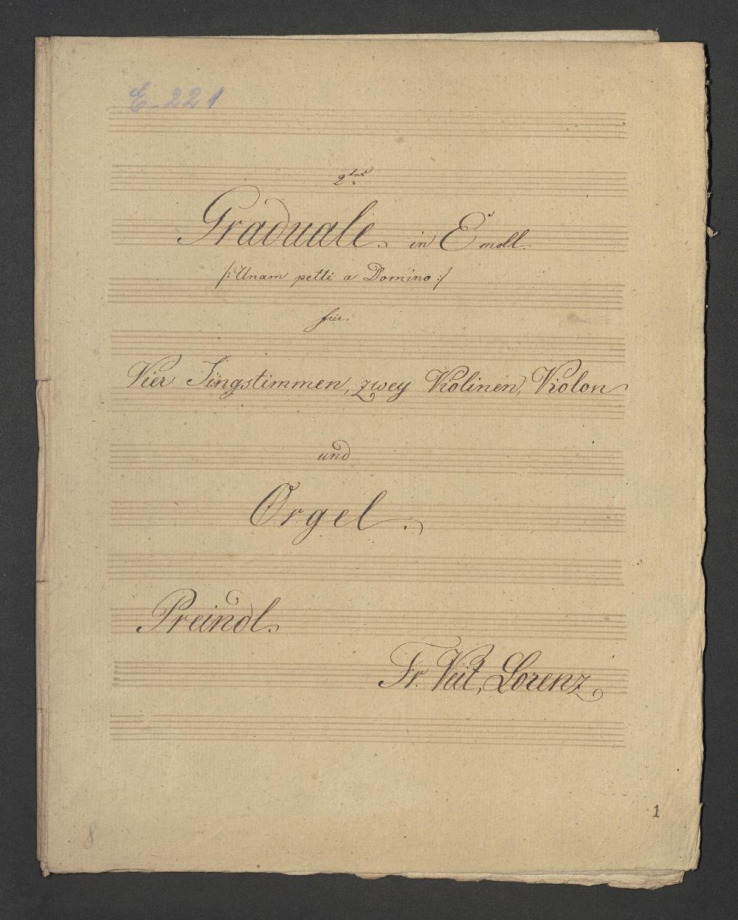 E-221
2tes
Graduale. in E moll.
/: Unam petti a Domino :/
für.
Vier Singstimmen, zwey Violinen, Violon
und
Orgel.
Preindl.
Fr. Veit, Lorenz.
1
8